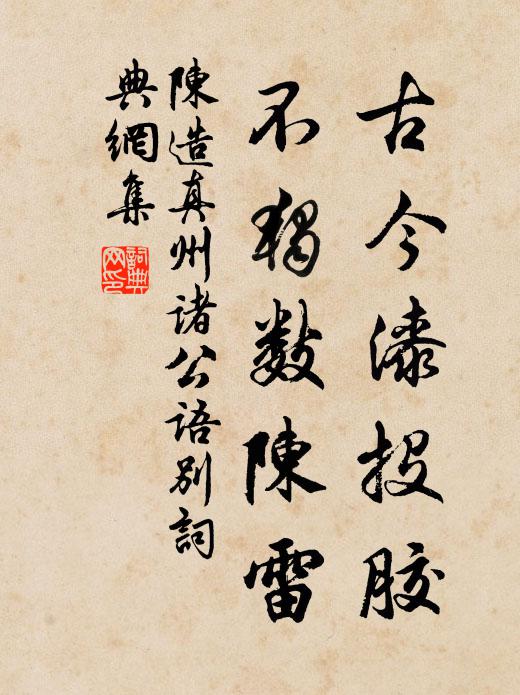 古今漆投胶
不独数陳雷
陳造真州诸公语别詞
典網集
詞典網印